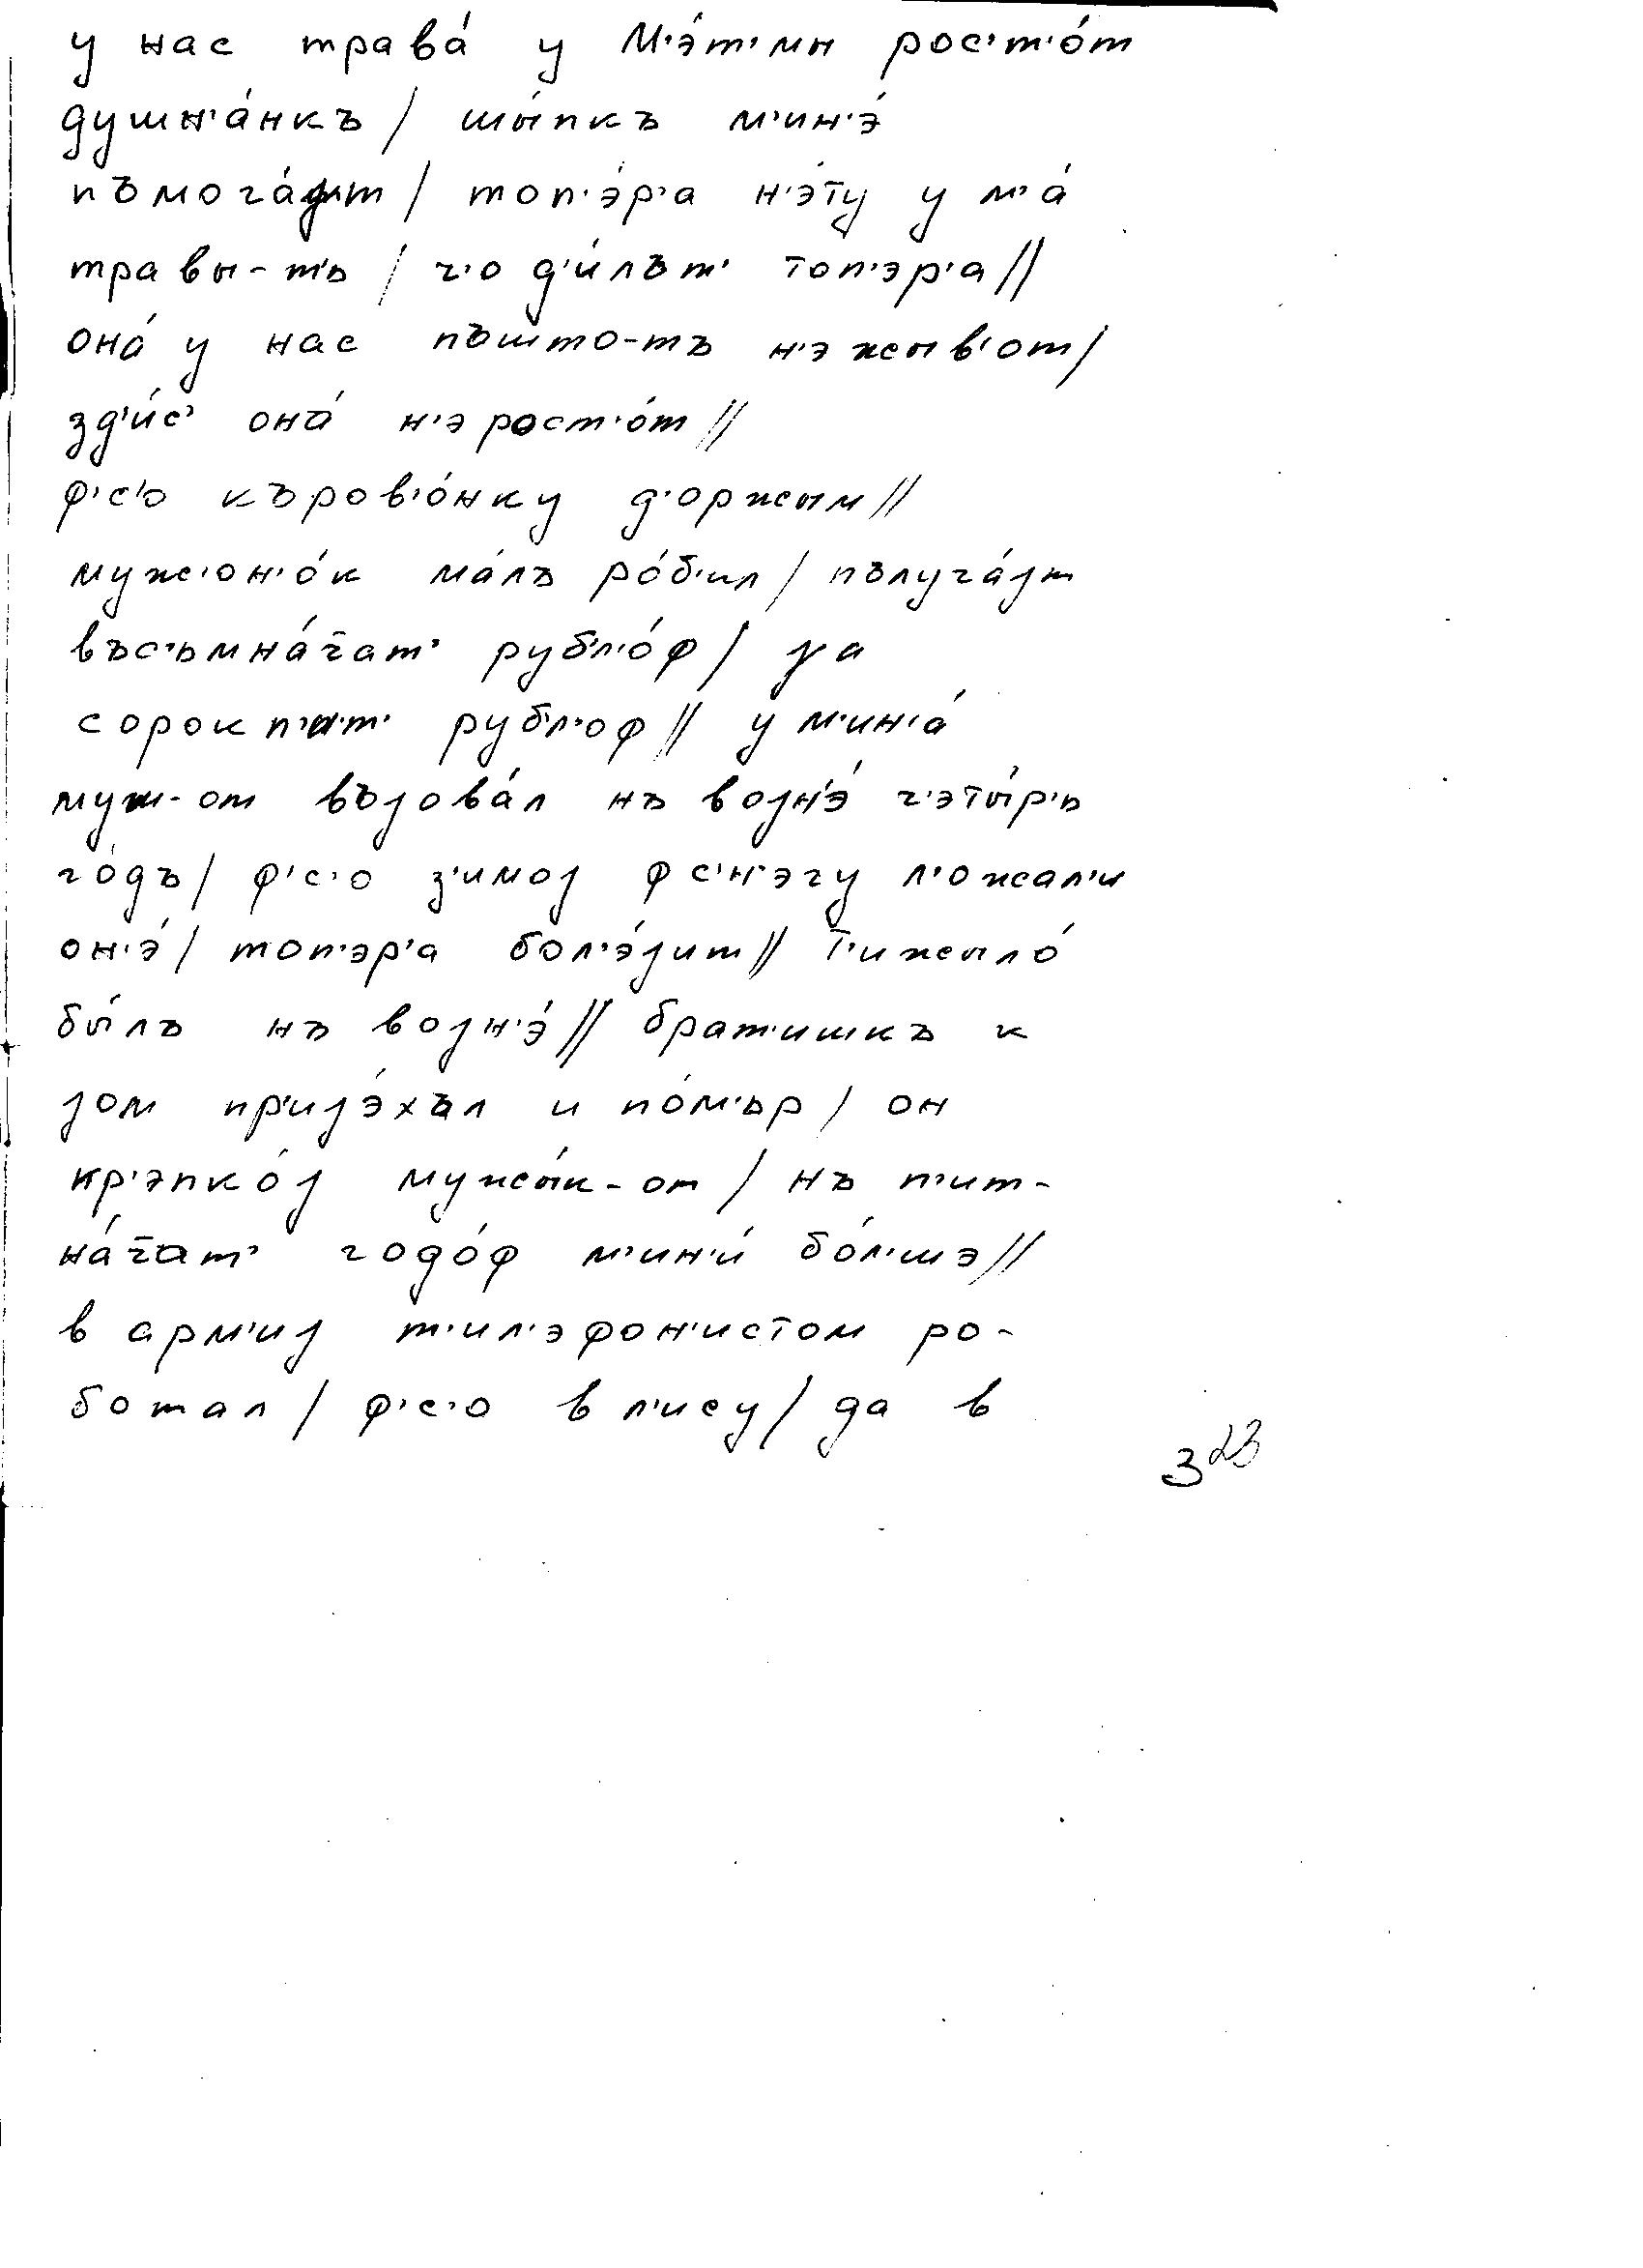 у нас трава́ у М'э́т'мн рос'т'о́т
душн'а́нкъ / шы́пкъ м'ин'э́
пъмога́jт / топ'э́р'а н'э́ту у м'а́
травы-тъ / ч'о д'и́лът' топ'эр'а //
она́ у нас пъшто-тъ н'э жыв'от /
зд'и́с' она́ н'э рост'о́т //
ф'с'о къров'о́нку д'оржым //
муж'он'о́к ма́лъ ро́б'ил / пълуча́jт
въс'ьмна́цат' рубл'о́ф / jа
сорок п'ат' рубл'оф // у м'ин'а́
муж-от въjова́л нъ воjн'э́ ч'эты́р'ь
го́дъ / ф'с'о з'имоj ф с'н'эгу л'ожал'и
он'э́ / топ'эр'а бол'э́jит // т'ижыло́
бы́лъ нъ воjн'э́ // брат'ишкъ к
jом пр'иjэ́хъл и по́м'ьр / он
кр'эпко́j мужы́к-от / нъ п'ит-
на́цат' годо́ф м'ин'и́ бо́л'шэ //
в арм'иj т'ил'эфон'истом ро-
ботал / ф'с'о в л'ису / да в
323